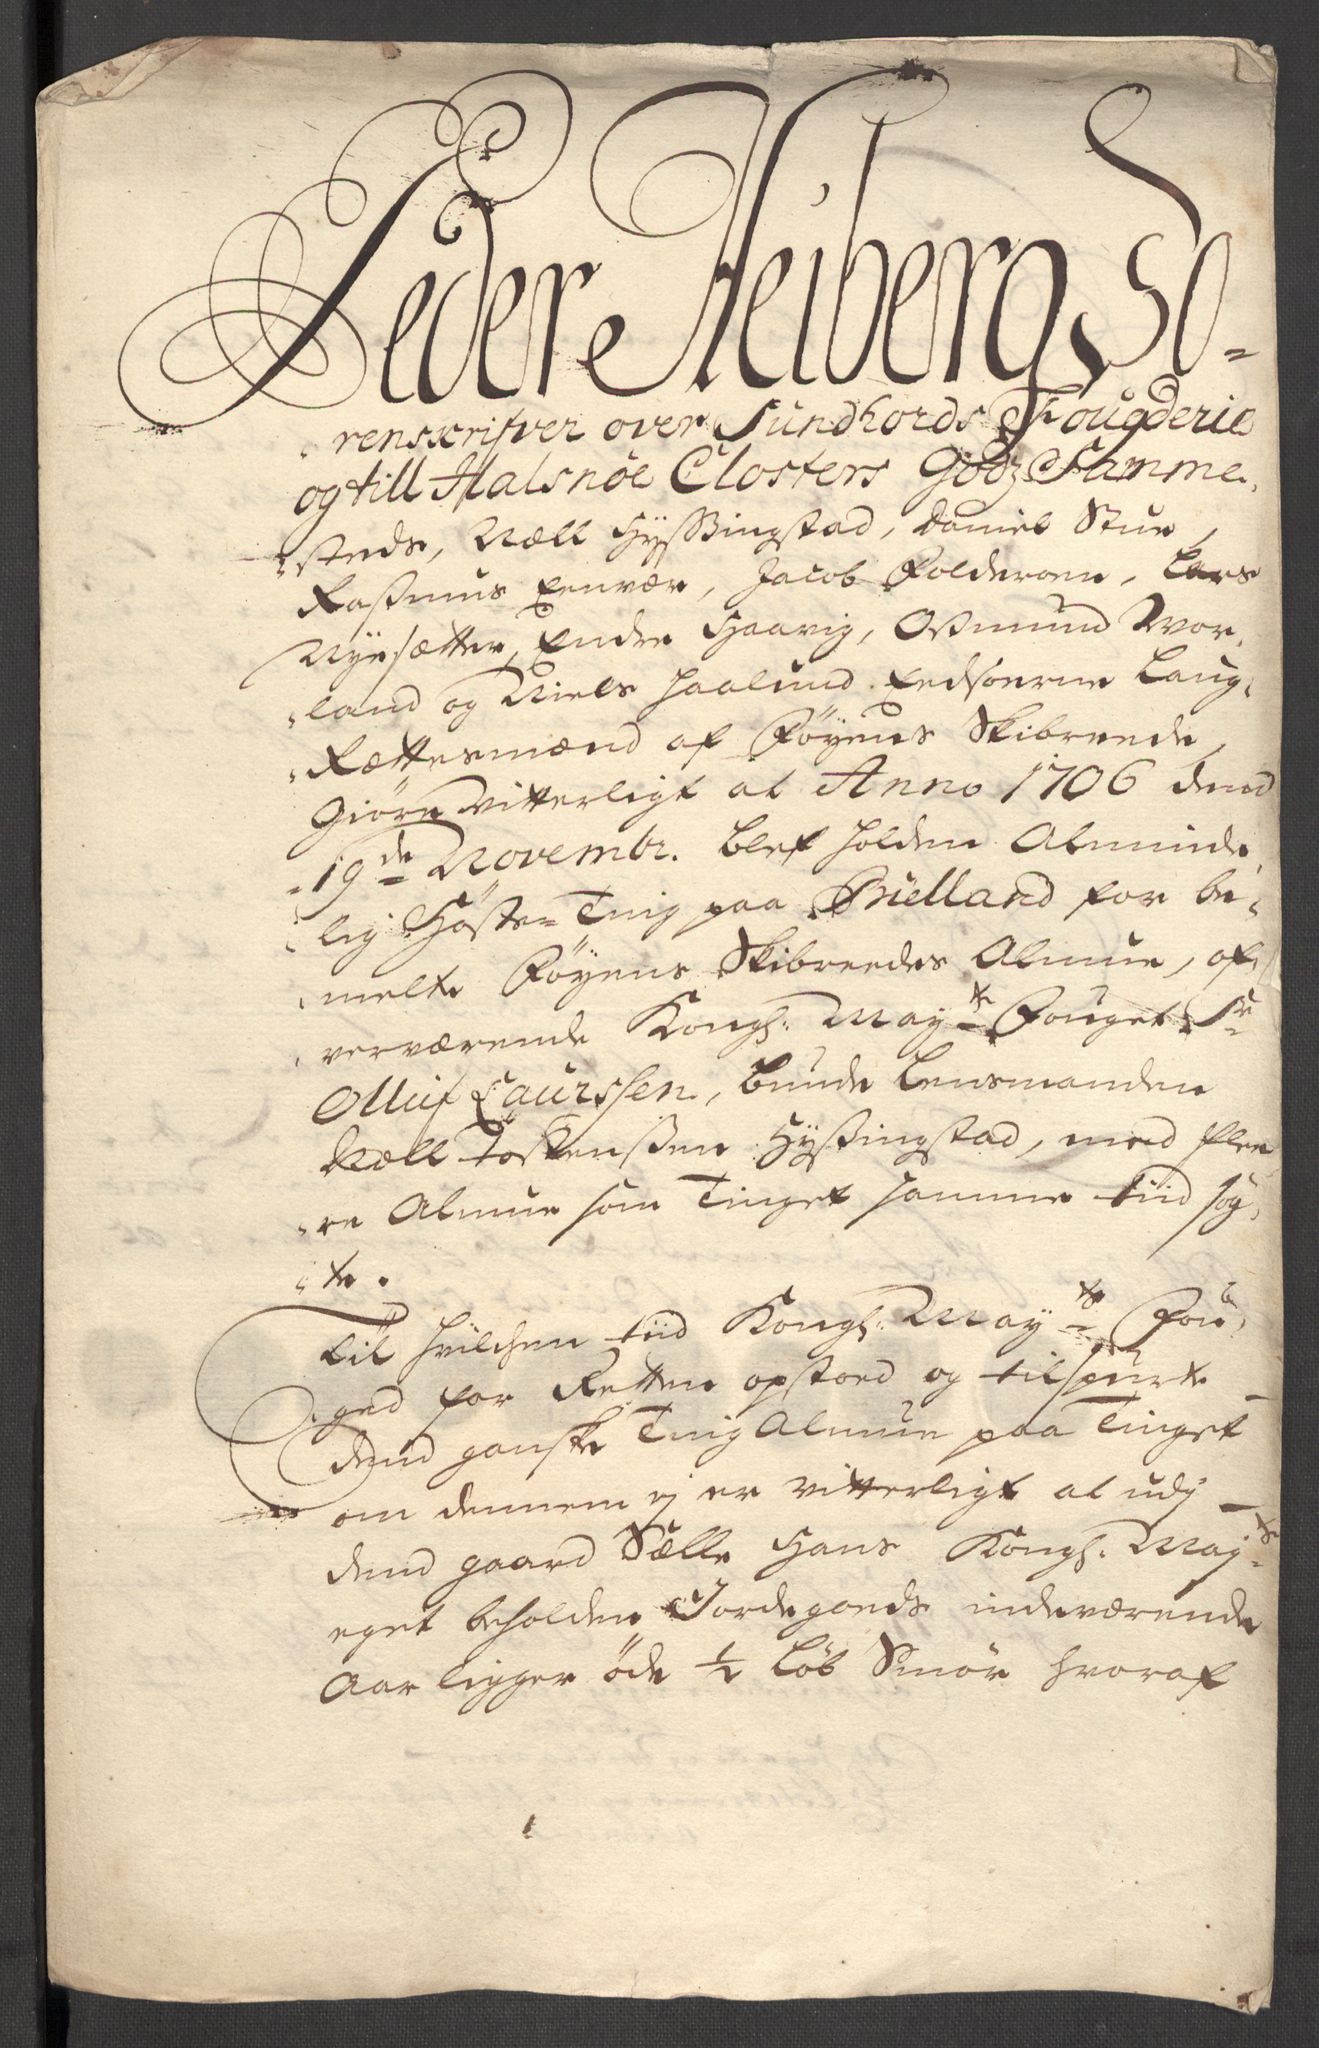 Peder Heiberg So-
renskrifver over Sundhords Fougderie
og till Halsnöe Closters Godz Samme-
steds, Niell Hyssingstad, Daniel Stue,
Rasmus Eenvær, Jacob Folderoen, Lars
Nysætter, Endre Haavig, Osmund Wor-
land og Niels Haalund Eedsoerne Laug-
Rættesmænd af Föyens Skibreede,
Giöre Vitterligt at Anno 1706 dend
19de Novembr. blef holden Alminde-
lig Höste-Ting paa Bielland for be-
melte Föyens Skibreedes Almue, of-
verværende Kongl. Mayts Fouget Sr
Olluf Laurssen, Bunde Lensmanden
Niell Tostenssen Hyssingstad, med flee-
re Almue som Tinget samme tiid sög-
te.
Til hvilchen tiid Kongl. Mayts Fou-
ged for Retten opstoed og tilspurte
dend ganske Ting Almue paa Tinget
om dennem ej er Vitterligt at udj
dend gaard Sælle Hans Kongl. Mayts
eget beholden Jordegoeds indeværende
Aar ligger öde ½ Löb Smör hvoraf